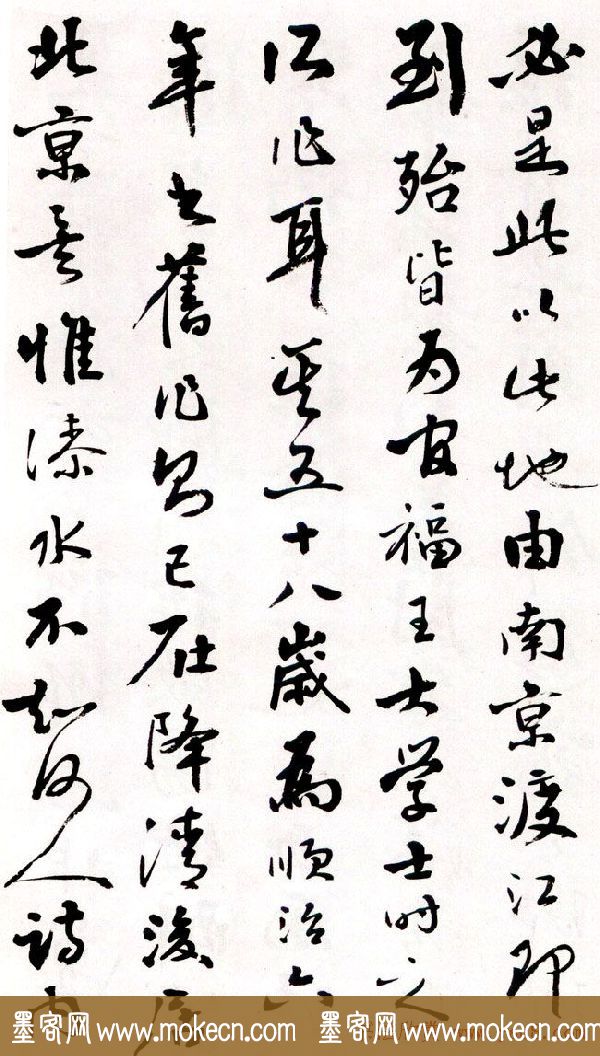 必是此以此地由南京渡江即
到殆皆为官福王大学士时之
所作耳其五十八歳為順治六
年之舊作則已在降清後居
北京矣惟溱水不知何人詩中
墨客网 www.mokecn.com 墨客网 www.mokecn.com